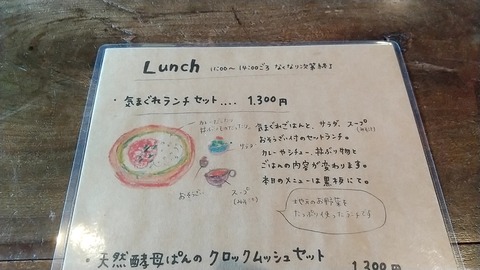 Lunch 11:00〜14:00ごろ なくなり次第終了
・気まぐれランチセット.... 1,300円
サラダ
おそうざい
スープ
気まぐれごはんと、サラダ、スープ
おそうざい付のセットランチ。
カレーやシチュー、丼ぶり物と
ごはんの内容が変わります。
本日のメニューは黒板にて。
地元のお野菜を
たっぷり使ったランチです
・天然酵母ぱんの クロックムッシュセット
1,300円